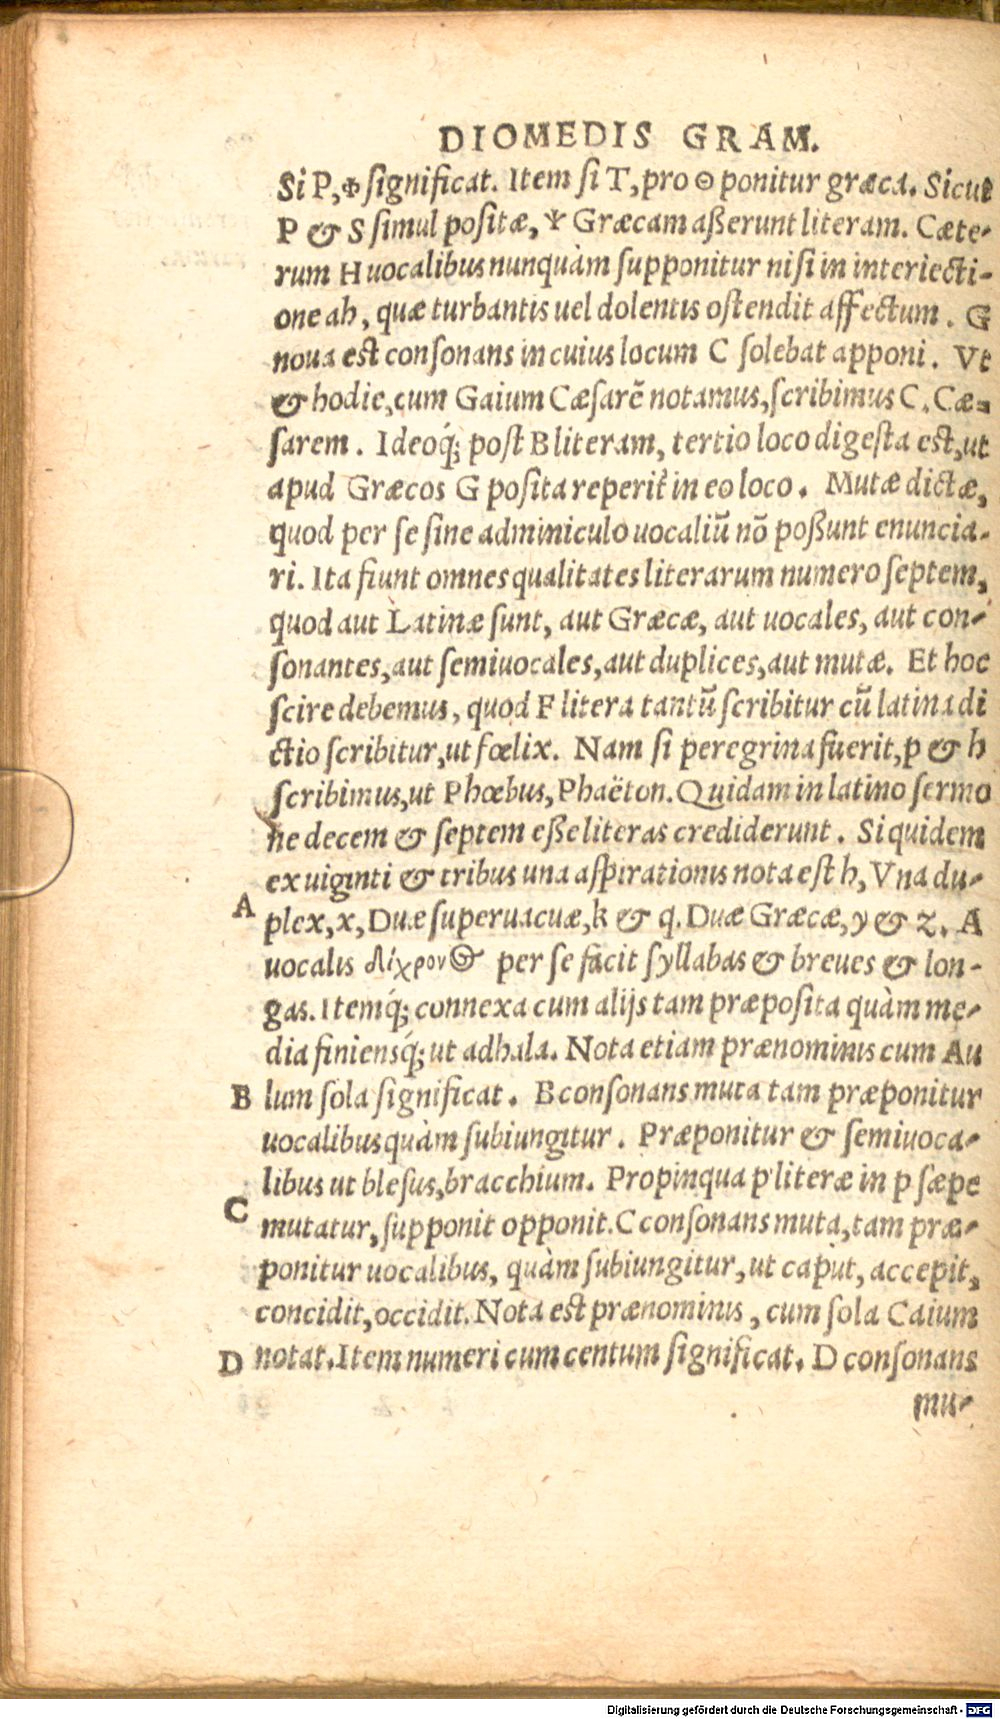 DIOMEDIS GRAM.
Si P, Φ significat. Item si T, pro Θ ponitur græca. Sicut
P & S simul positæ, Ψ Græcam aßerunt literam. Cæte-
rum H uocalibus nunquàm supponitur nisi in interiecti-
one ah, quæ turbantis uel dolentis ostendit affectum. G
noua est consonans in cuius locum C solebat apponi. Vt
& hodie, cum Gaium Cæsarē notamus, scribimus C. Cæ-
sarem. Ideoq́; post B literam, tertio loco digesta est, ut
apud Græcos G posita reperit̃ in eo loco. Mutæ dictæ,
quod per se sine adminiculo uocaliū nō poßunt enuncia-
ri. Ita fiunt omnes qualitates literarum numero septem,
quod aut Latinæ sunt, aut Græcæ, aut uocales, aut con-
sonantes, aut semiuocales, aut duplices, aut mutæ. Et hoc
scire debemus, quod F litera tantū scribitur cū latina di
ctio scribitur, ut fœlix. Nam si peregrina fuerit, p & h
scribimus, ut Phœbus, Phaëton. Quidam in latino sermo
ne decem & septem eße literas crediderunt. Siquidem
ex uiginti & tribus una aspirationis nota est h, Vna du-
A plex, x, Duæ superuacuæ, k & q. Duæ Græcæ, y & z. A
uocalis δίχρονος per se facit syllabas & breues & lon-
gas. Itemq́; connexa cum alijs tam præposita quàm me-
dia finiensq́; ut adhala. Nota etiam prænominis cum Au
B lum sola significat. B consonans muta tam præponitur
uocalibus quàm subiungitur. Præponitur & semiuoca-
libus ut blesus, bracchium. Propinqua p literæ in p sæpe
C mutatur, supponit opponit. C consonans muta, tam præ-
ponitur uocalibus, quàm subiungitur, ut caput, accepit,
concidit, occidit. Nota est prænominis, cum sola Caium
D notat. Item numeri cum centum significat. D consonans
mu-
Digitalisierung gefördert durch die Deutsche Forschungsgemeinschaft - DFG